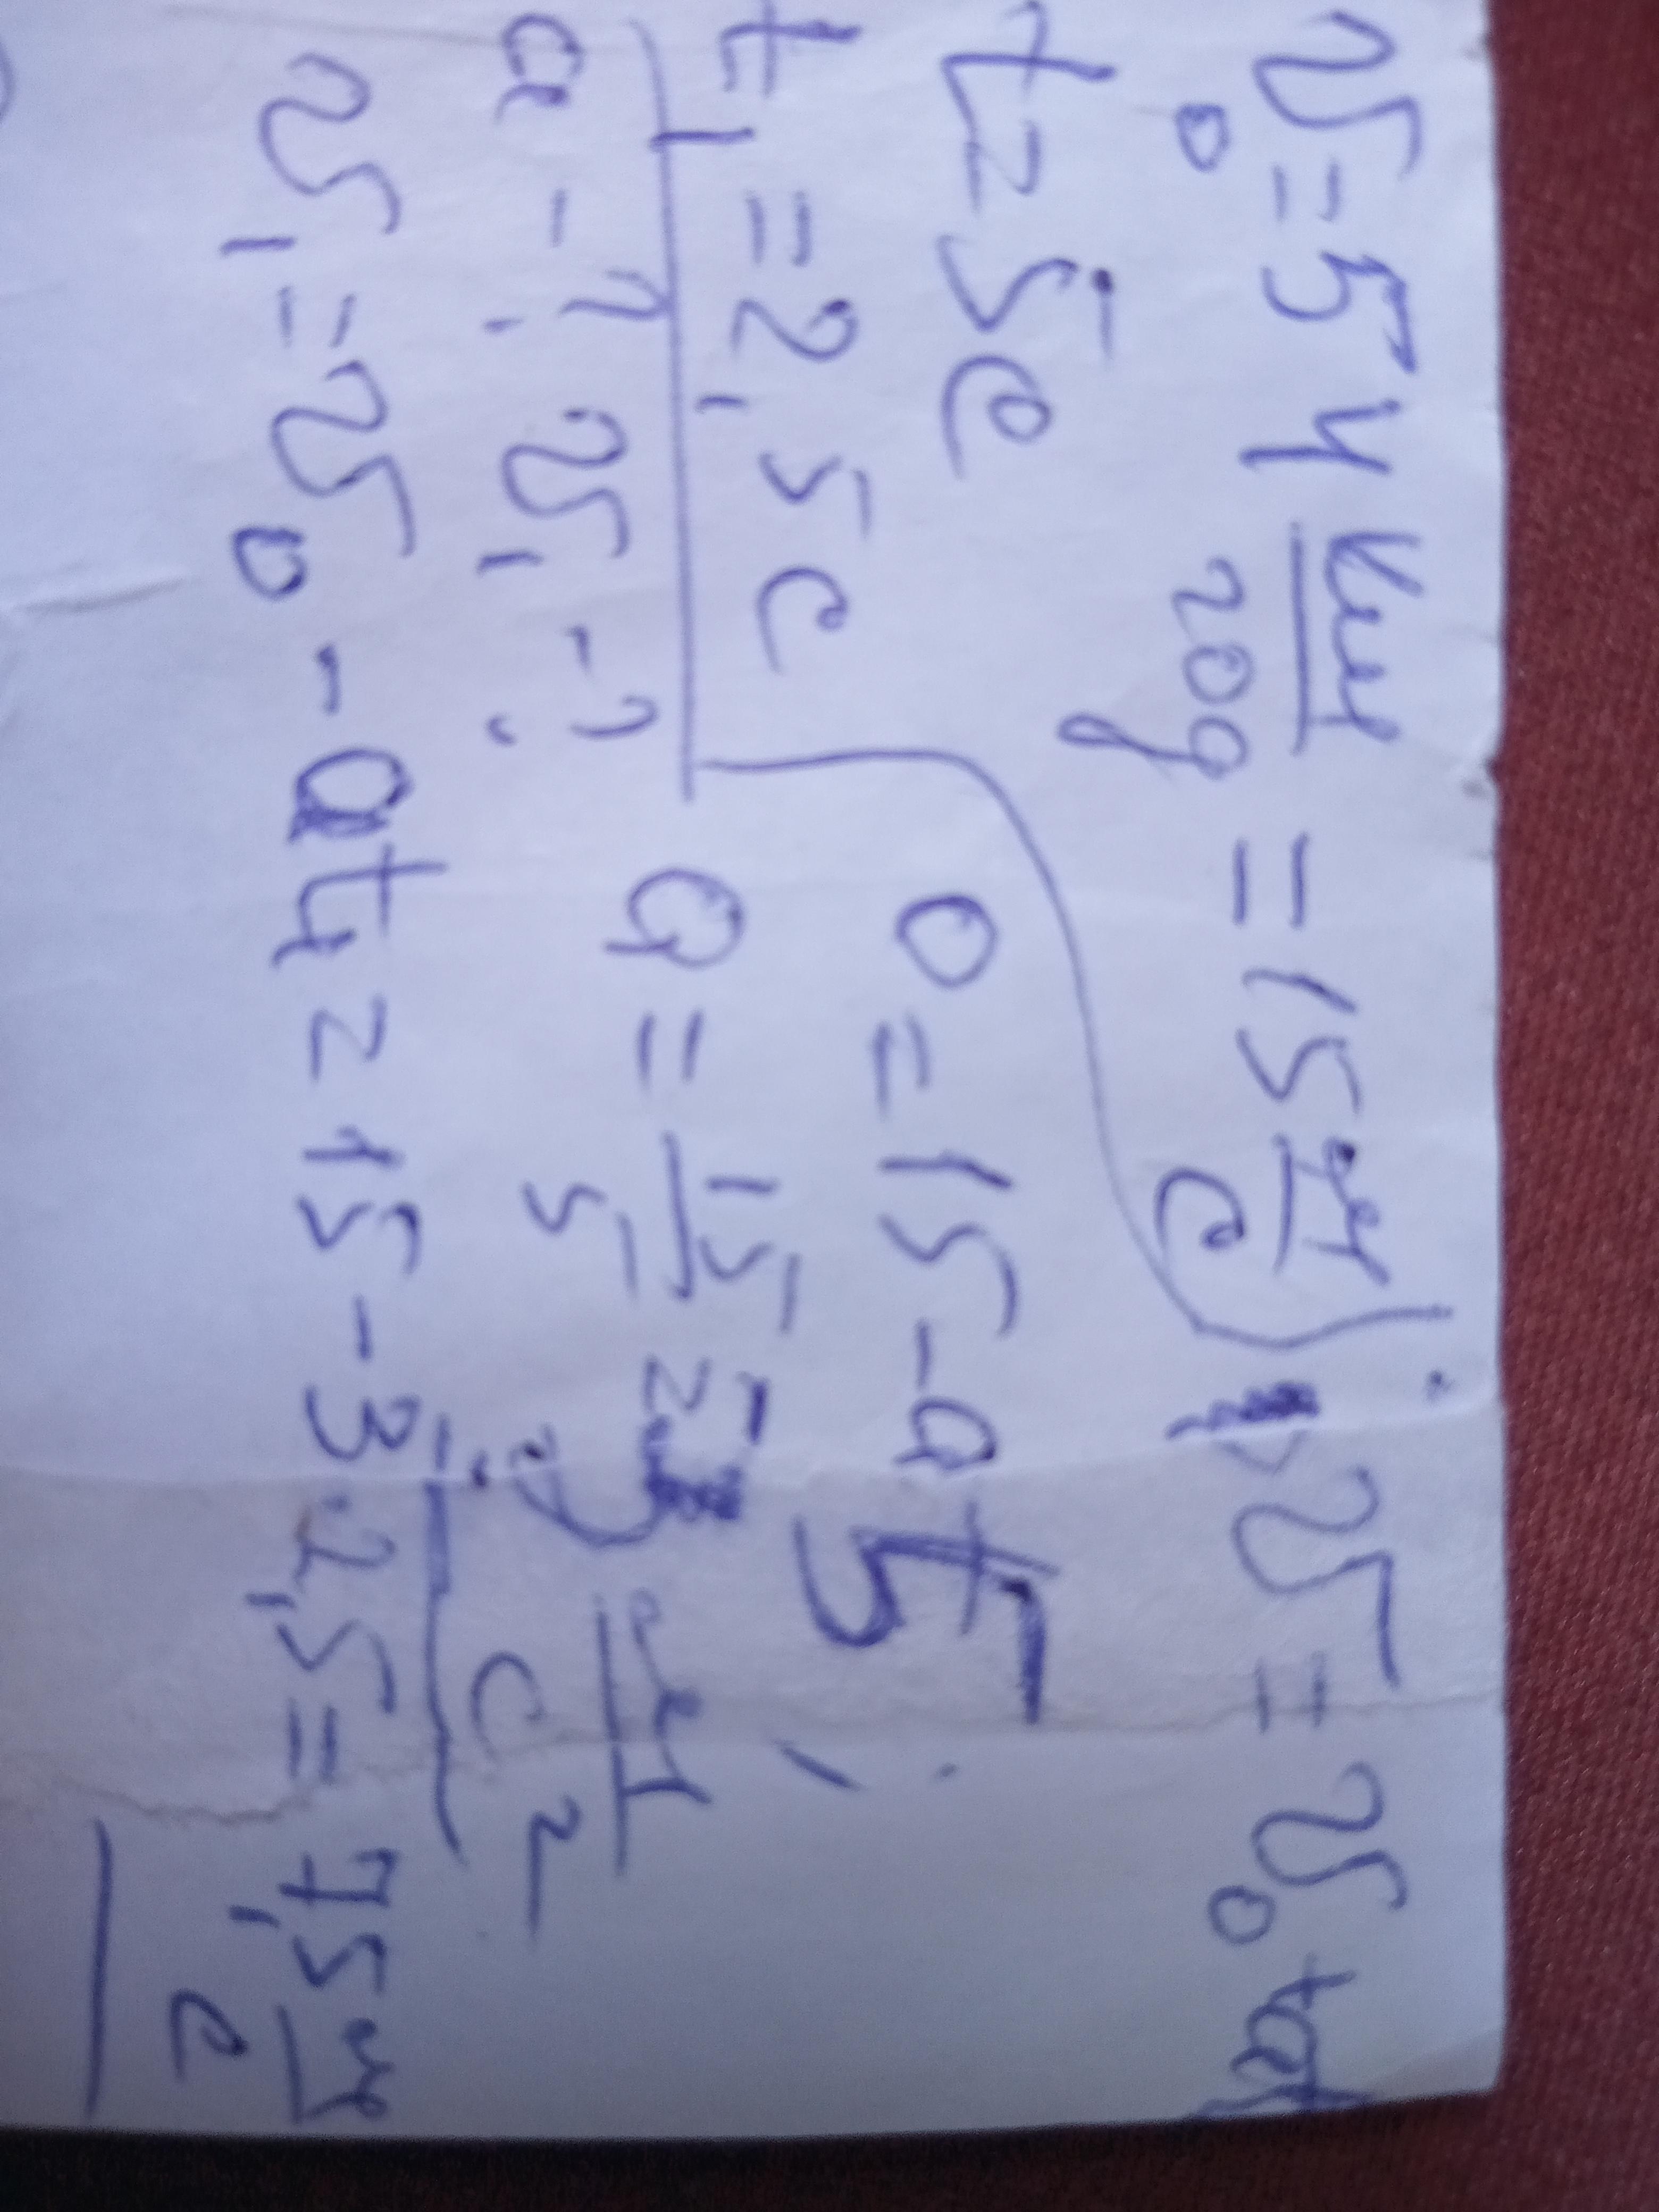 v₀ = 54 км/год = 15 м/с; v = v₀ + at
t = 5 с
0 = 15 - a5;
t₁ = 2,5 с
a = 15/5 = 3 м/с²;
a - ? v₁ - ?
v₁ = v₀ - at₁ = 15 - 3·2,5 = 7,5 м/с